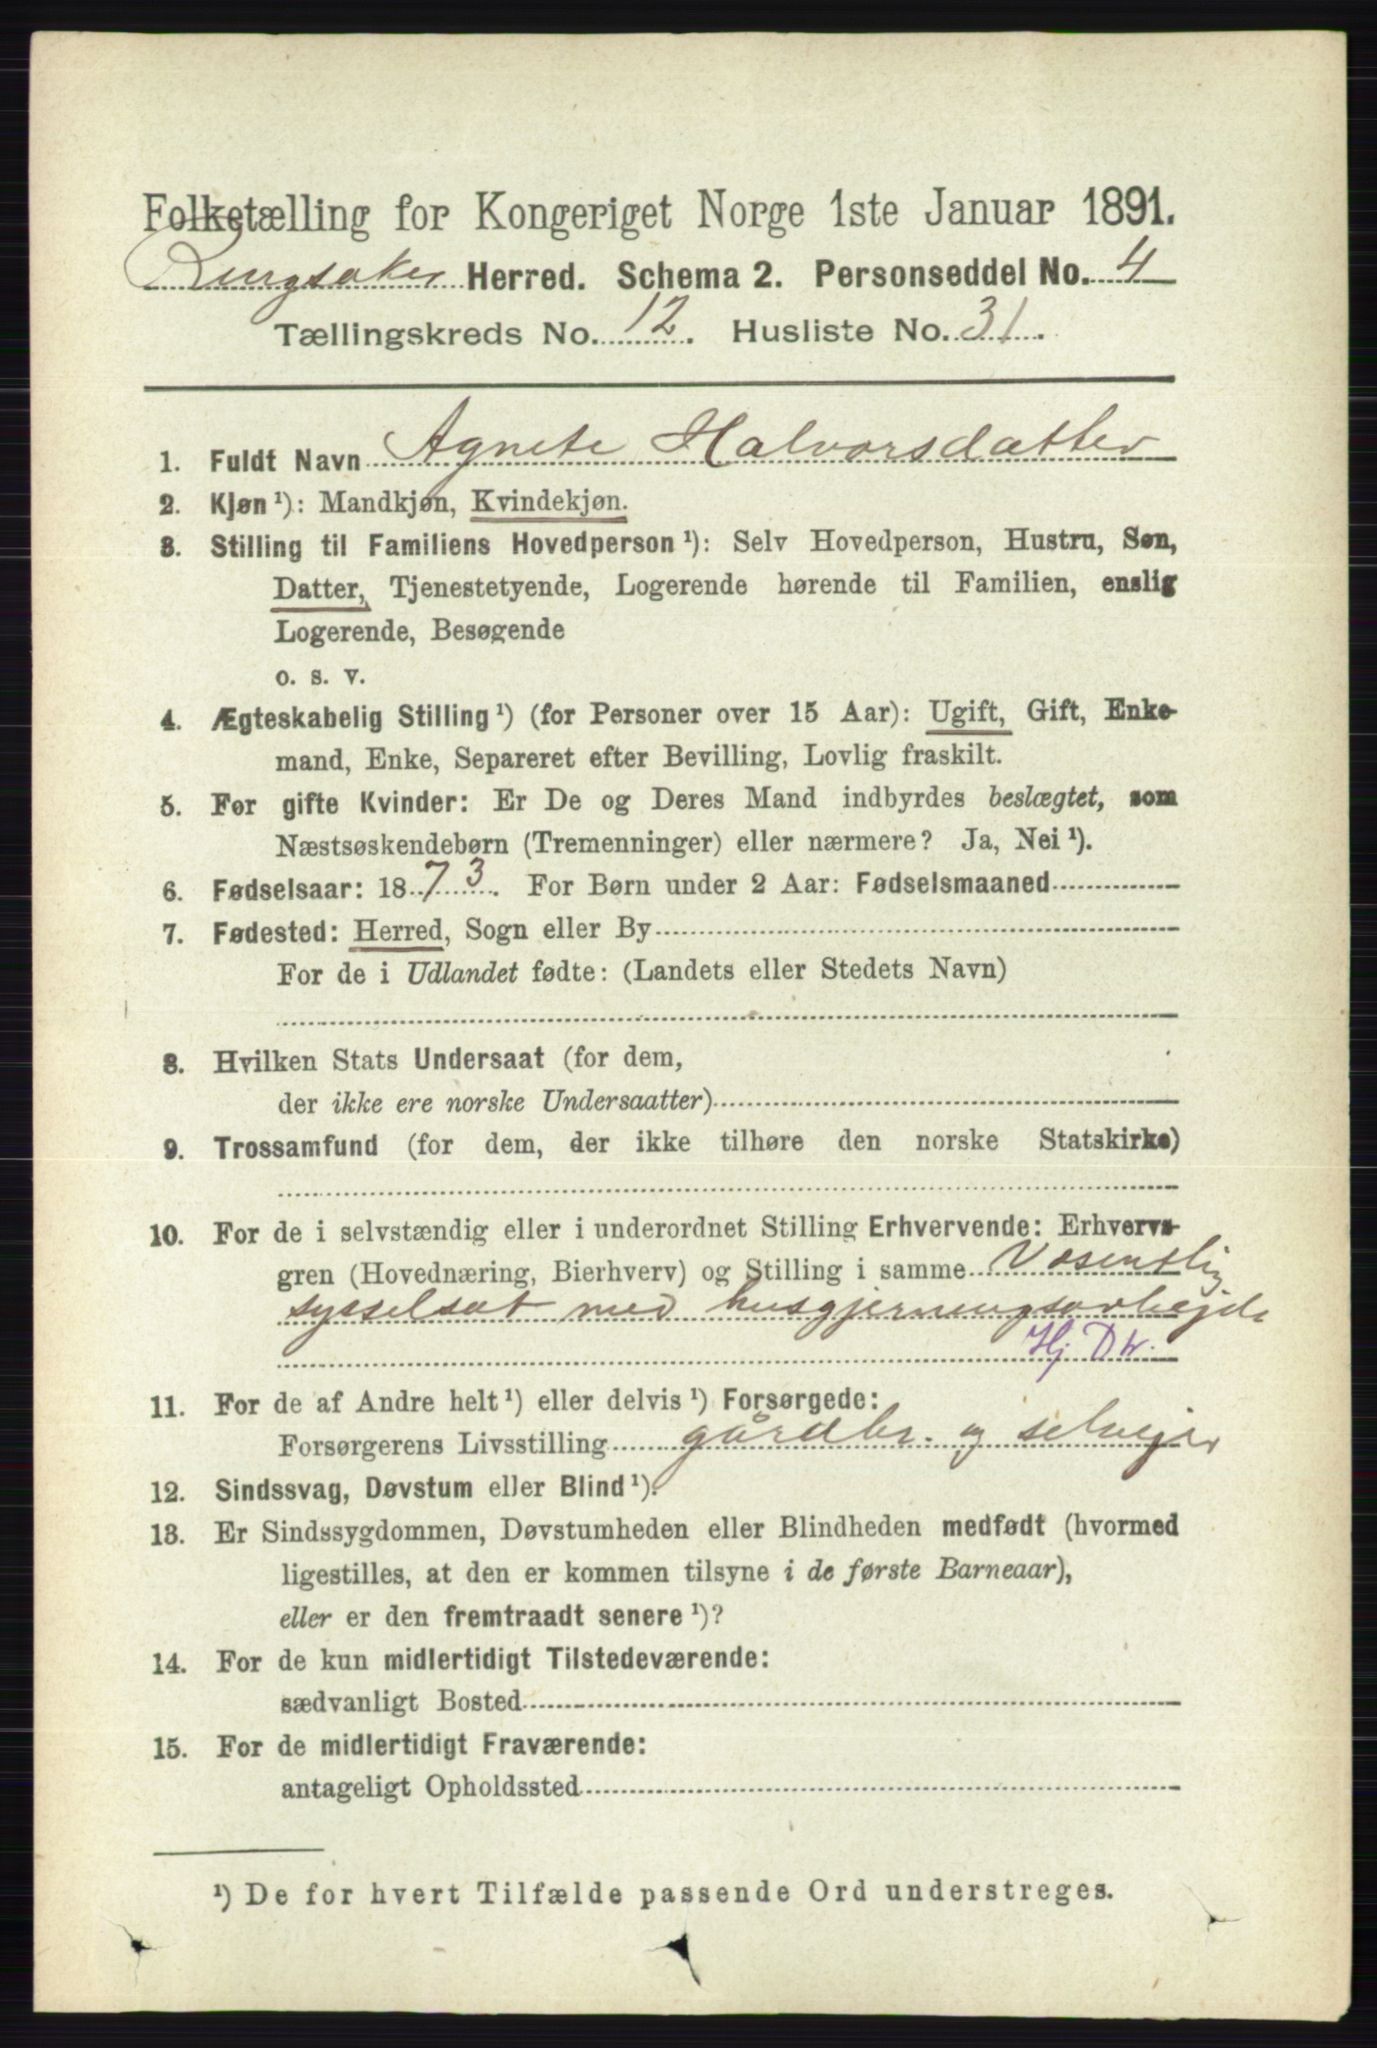 Folketælling for Kongeriget Norge 1ste Januar 1891.
Ringsaker Herred. Schema 2. Personseddel No. 4
Tællingskreds No. 12. Husliste No. 31.
1. Fuldt Navn Agnete Halvorsdatter
2. Kjøn ¹): Mandkjøn, Kvindekjøn.
3. Stilling til Familiens Hovedperson ¹): Selv Hovedperson, Hustru, Søn,
Datter, Tjenestetyende, Logerende hørende til Familien, enslig
Logerende, Besøgende
o. s. v.
4. Ægteskabelig Stilling ¹) (for Personer over 15 Aar): Ugift, Gift, Enke-
mand, Enke, Separeret efter Bevilling, Lovlig fraskilt.
5. For gifte Kvinder: Er De og Deres Mand indbyrdes beslægtet, som
Næstsøskendebørn (Tremenninger) eller nærmere? Ja, Nei ¹).
6. Fødselsaar: 1873. For Børn under 2 Aar: Fødselsmaaned
7. Fødested: Herred, Sogn eller By
For de i Udlandet fødte: (Landets eller Stedets Navn)
8. Hvilken Stats Undersaat (for dem,
der ikke ere norske Undersaatter)
9. Trossamfund (for dem, der ikke tilhøre den norske Statskirke)
10. For de i selvstændig eller i underordnet Stilling Erhvervende: Erhvervs-
gren (Hovednæring, Bierhverv) og Stilling i samme Væsentlig
sysselsat med husgjerningsarbejde
Hj. Dtr.
11. For de af Andre helt ¹) eller delvis ¹) Forsørgede:
Forsørgerens Livsstilling gårdbr. og selvejer
12. Sindssvag, Døvstum eller Blind ¹).
13. Er Sindssygdommen, Døvstumheden eller Blindheden medfødt (hvormed
ligestilles, at den er kommen tilsyne i de første Barneaar),
eller er den fremtraadt senere ¹)?
14. For de kun midlertidigt Tilstedeværende:
sædvanligt Bosted
15. For de midlertidigt Fraværende:
antageligt Opholdssted
¹) De for hvert Tilfælde passende Ord understreges.